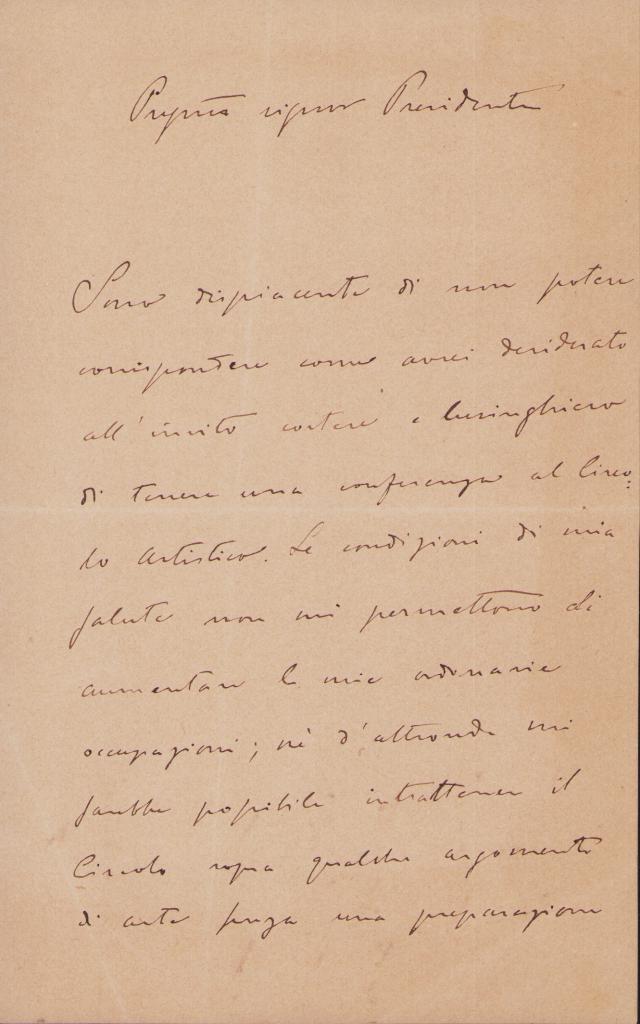 Pregmo signor Presidente
Sono dispiacente di non potere
corrispondere come avrei desiderato
all'invito cortese e lusinghiero
di tenere una conferenza al Circo:
lo Artistico. Le condizioni di mia
salute non mi permettono di
aumentare le mie ordinarie
occupazioni; nè d'altronde mi
sarebbe possibile intrattenere il
Circolo sopra qualche argomento
di arte senza una preparazione